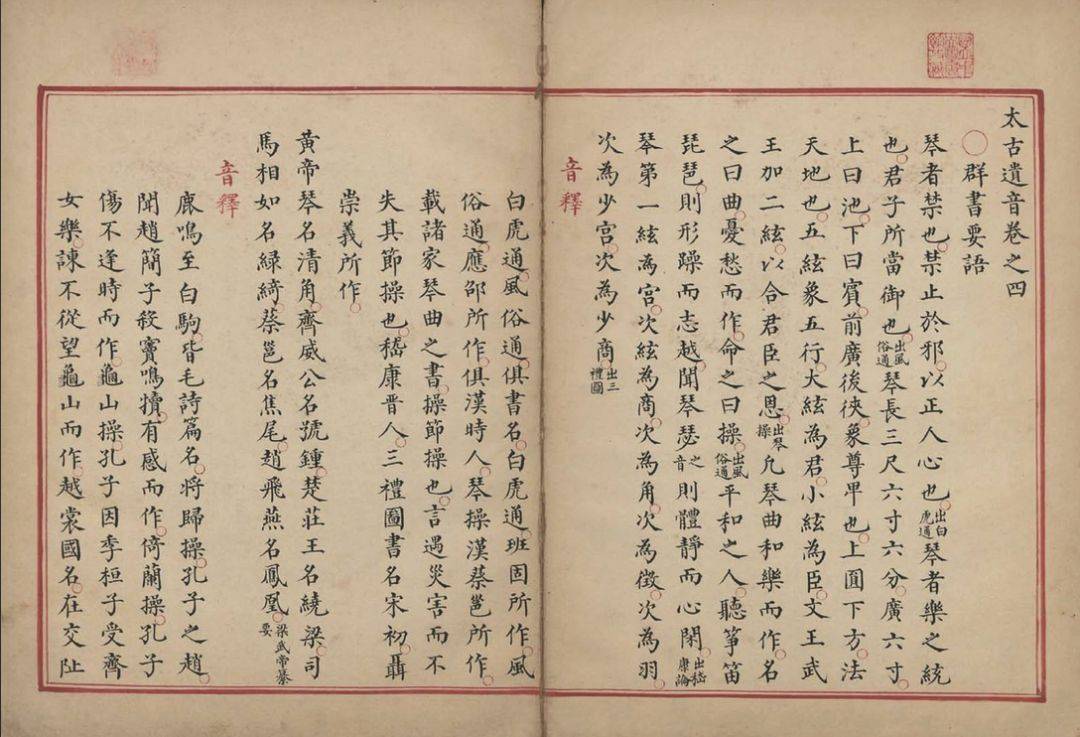 太古遺音卷之四
○群書要語
琴者禁也禁止於邪以正人心也出白虎通琴者樂之統
也君子所當御也出風俗通琴長三尺六寸六分廣六寸
上曰池下曰賓前廣後狹象尊卑也上圓下方法
天地也五絃象五行大絃為君小絃為臣文王武
王加二絃以合君臣之恩出琴操凡琴曲和樂而作名
之曰曲憂愁而作命之曰操出風俗通平和之人聽箏笛
琵琶則形躁而志越聞琴瑟之音則體靜而心閑出嵇康論
琴第一絃為宮次絃為商次為角次為徵次為羽
次為少宮次為少商出三禮圖
音釋
白虎通風俗通俱書名白虎通班固所作風
俗通應邵所作俱漢時人琴操漢蔡邕所作
載諸家琴曲之書操節操也言遇災害而不
失其節操也嵇康晋人三禮圖書名宋初聶
崇義所作
黃帝琴名清角齊威公名號鍾楚莊王名繞梁司
馬相如名緑綺蔡邕名焦尾趙飛燕名鳳凰梁武帝纂要
音釋
鹿鳴至白駒皆毛詩篇名將歸操孔子之趙
聞趙簡子殺竇鳴犢有感而作倚蘭操孔子
傷不逢時而作龜山操孔子因季桓子受齊
女樂諫不從望龜山而作越裳國名在交阯